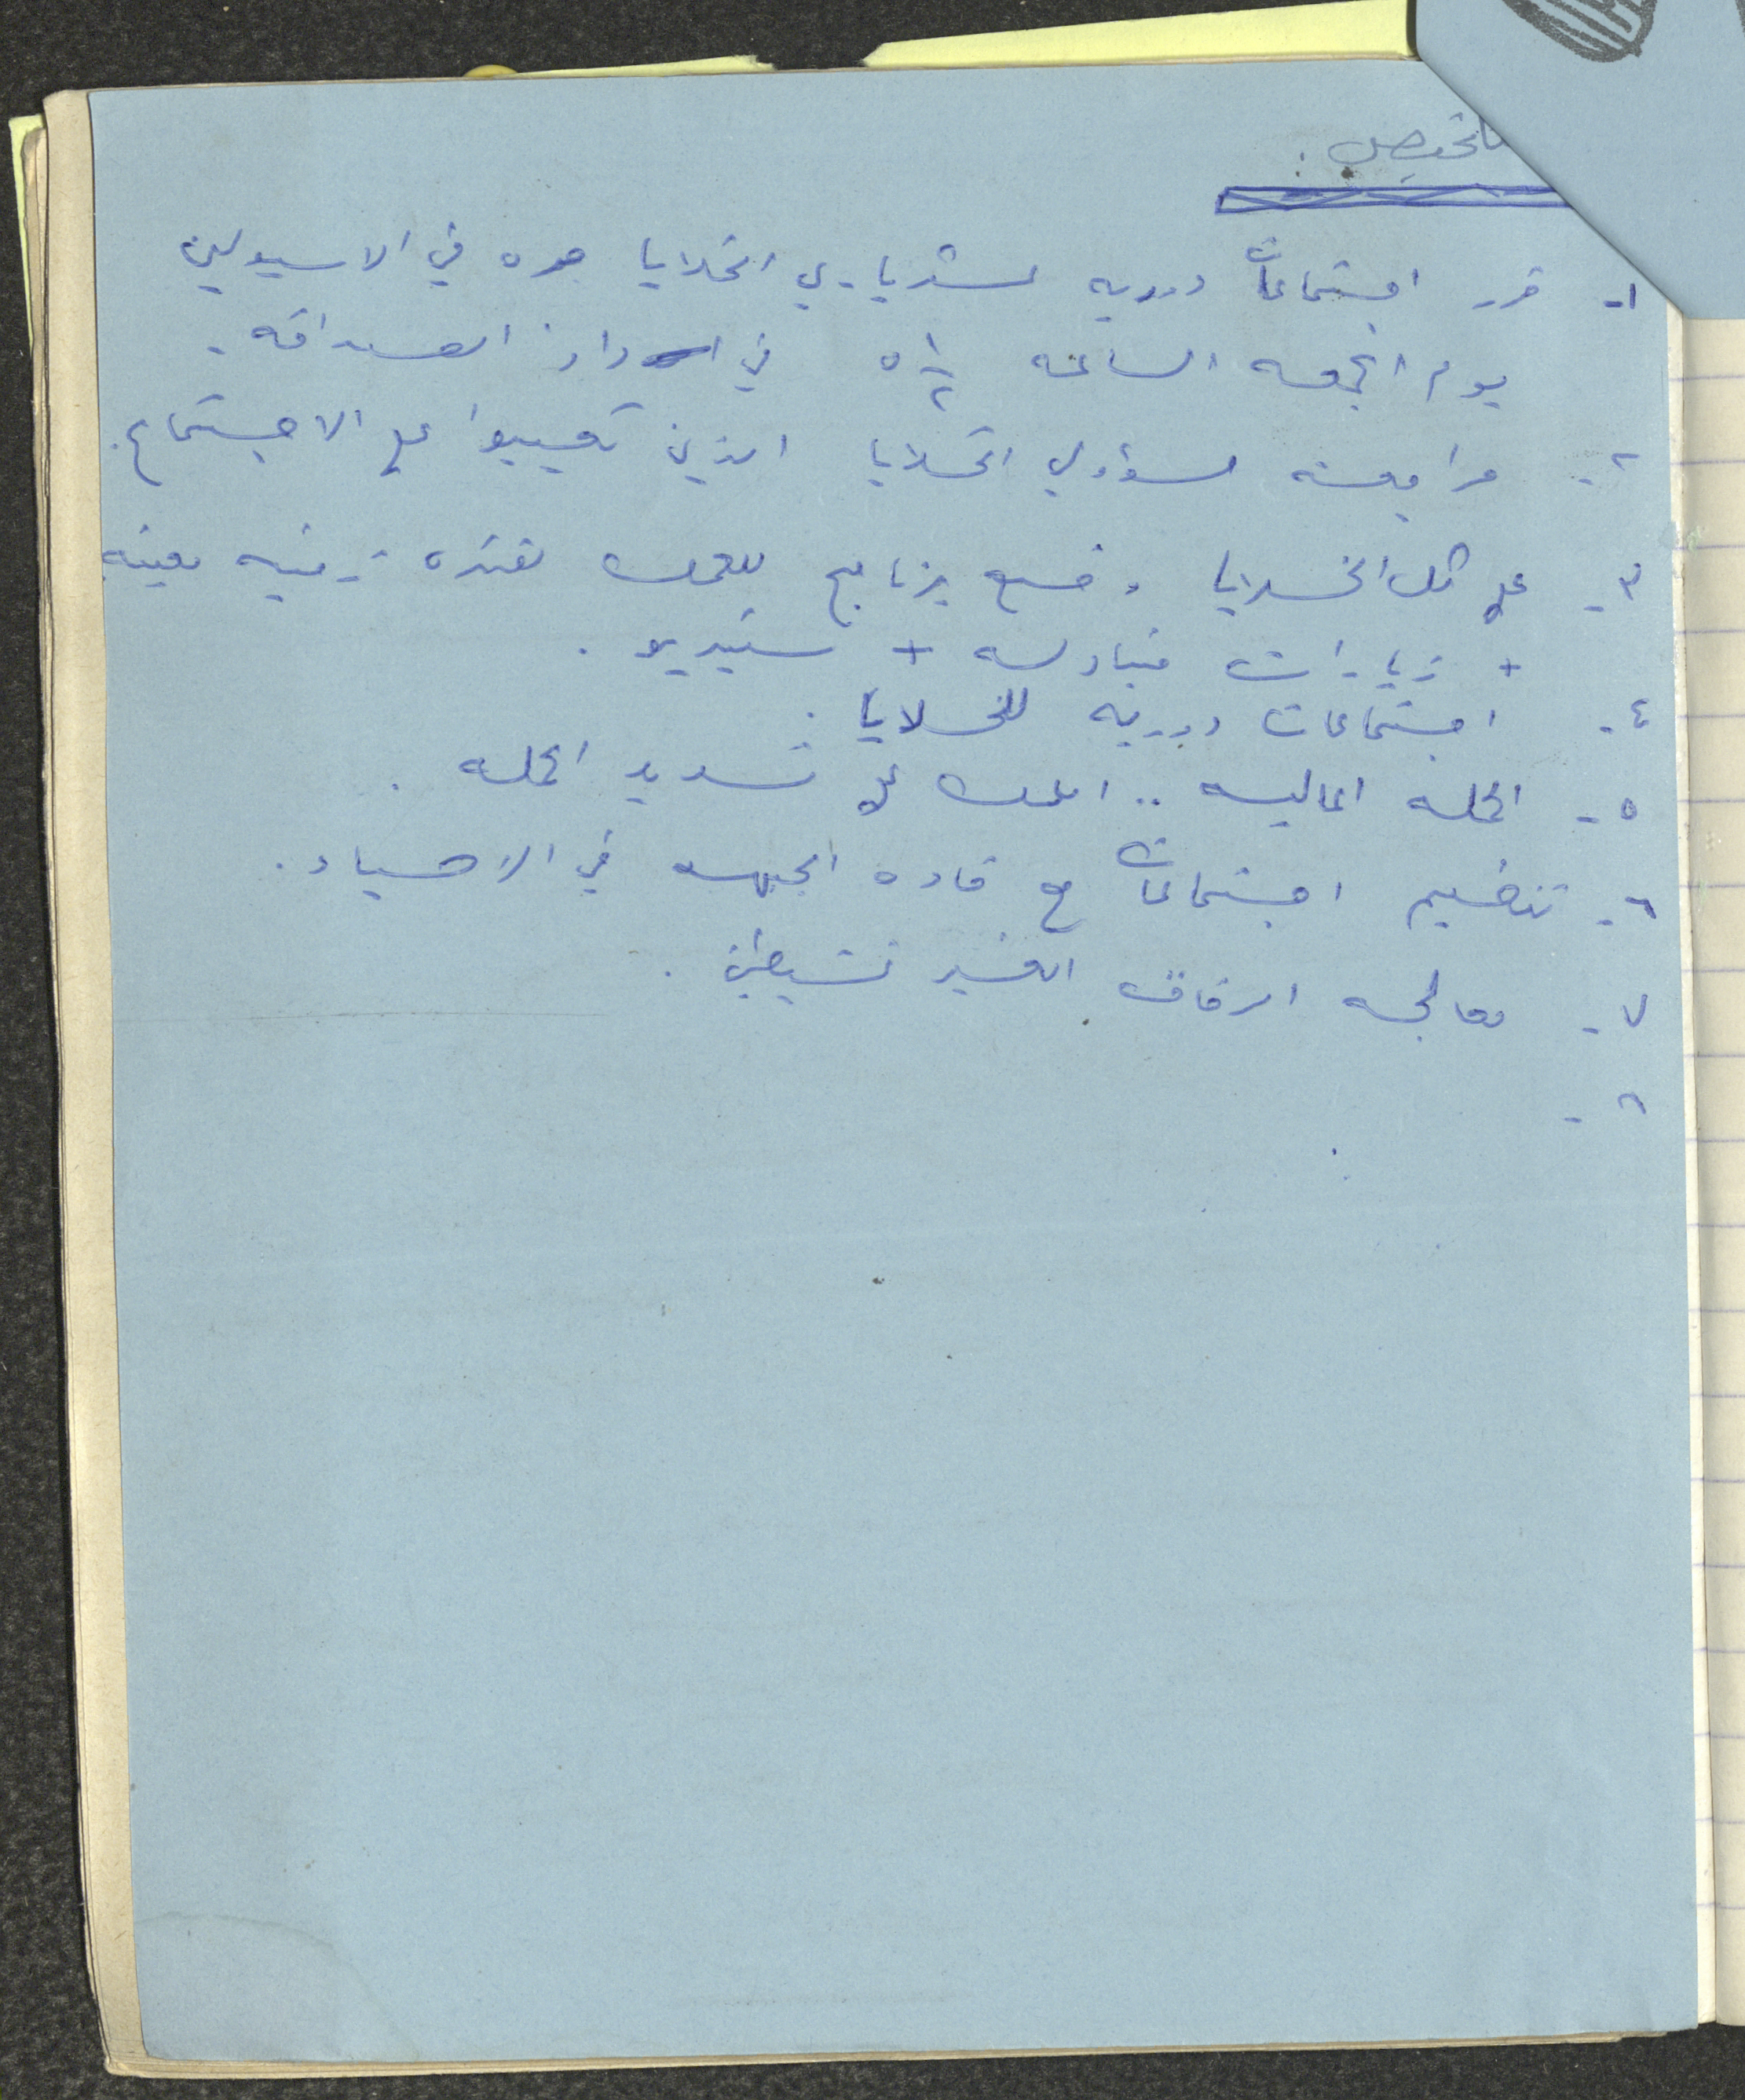 تلخيص :
١- قرر اجتماعات دوريه لسكرتياريي الخلايا مره في الاسبوعين
يوم الجمعه الساعه ٥ ١/٢ في دار الصداقه .
٢- مراجعه مسؤولي الخلايا الذين تغيبوا عن الاجتماع .
٣- على كل الخلايا وضع برنامج للعمل لفتره زمنيه معينه
+ زيارات متبادله + ستيديو .
٤- اجتماعات دوريه للخلايا .
٥- الحمله الماليه .. العمل على تسديد الحمله .
٦- تنظيم اجتماعات مع قاده الجبهه في الاحياء .
٧- معالجه الرفاق الغير نشيطين .
٨-